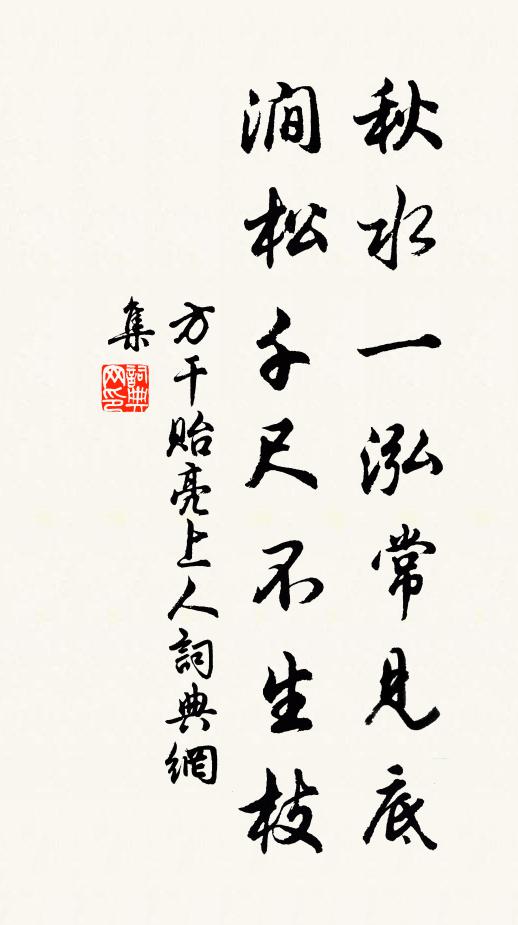 秋水一泓常見底
澗松千尺不生枝
方干貽亮上人詞典網
集
詞典
网印